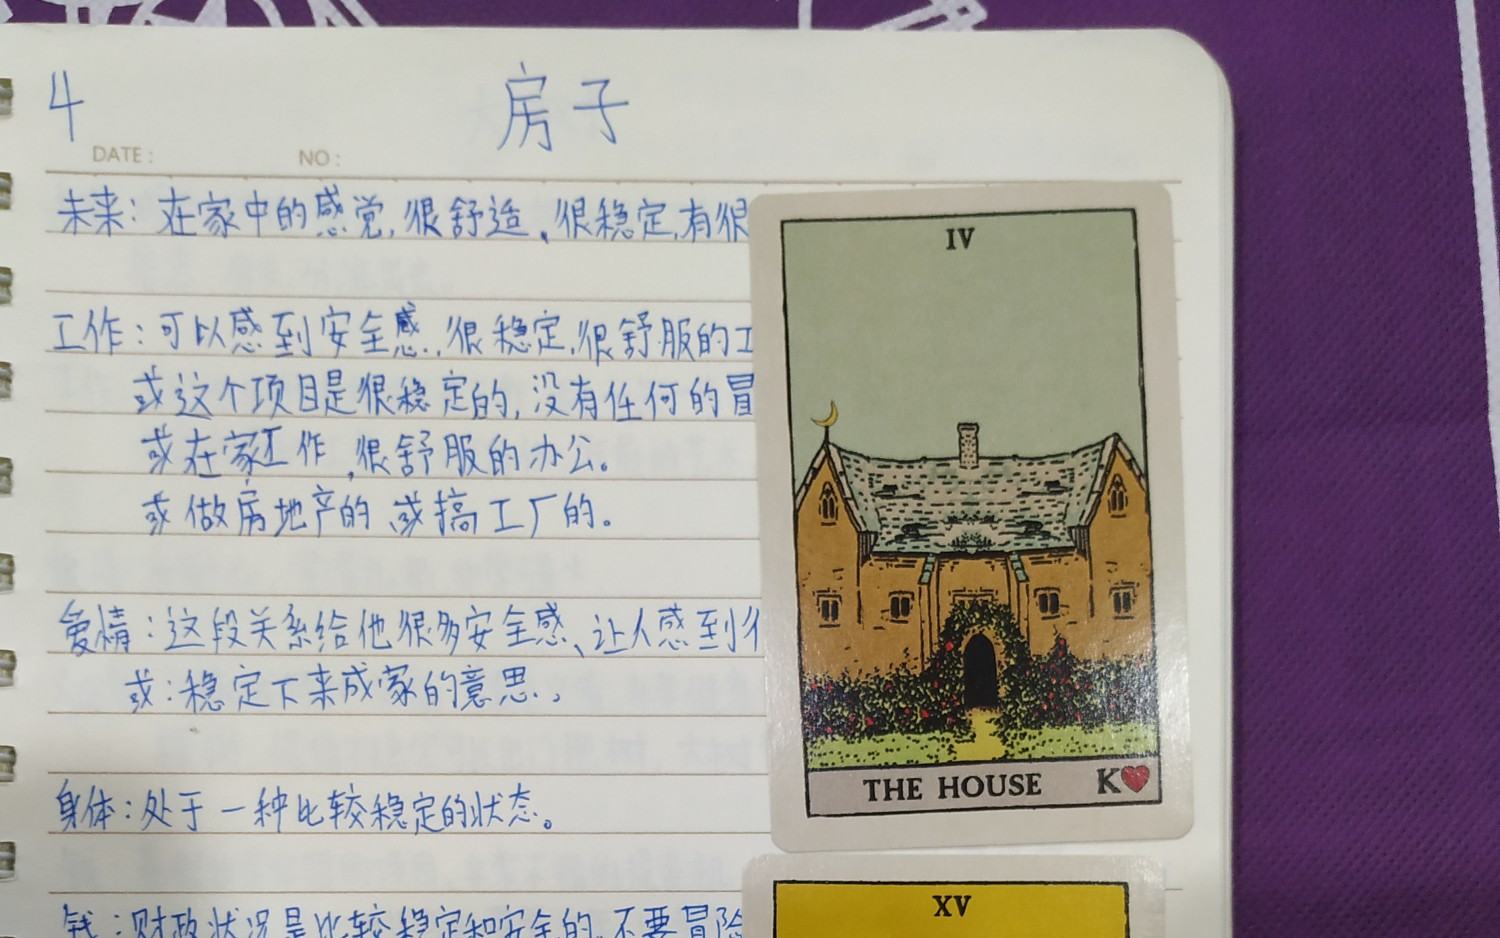 4 房子
DATE: NO:
未来：在家中的感觉，很舒适、很稳定，有很
工作：可以感到安全感，很稳定，很舒服的工
或这个项目是很稳定的，没有任何的冒
或在家工作，很舒服的办公。
或做房地产的、或搞工厂的。
爱情：这段关系给他很多安全感、让人感到
或：稳定下来成家的意思。
身体：处于一种比较稳定的状态。
钱：财政状况是比较稳定和安全的，不要冒险
IV
THE HOUSE K♥
XV